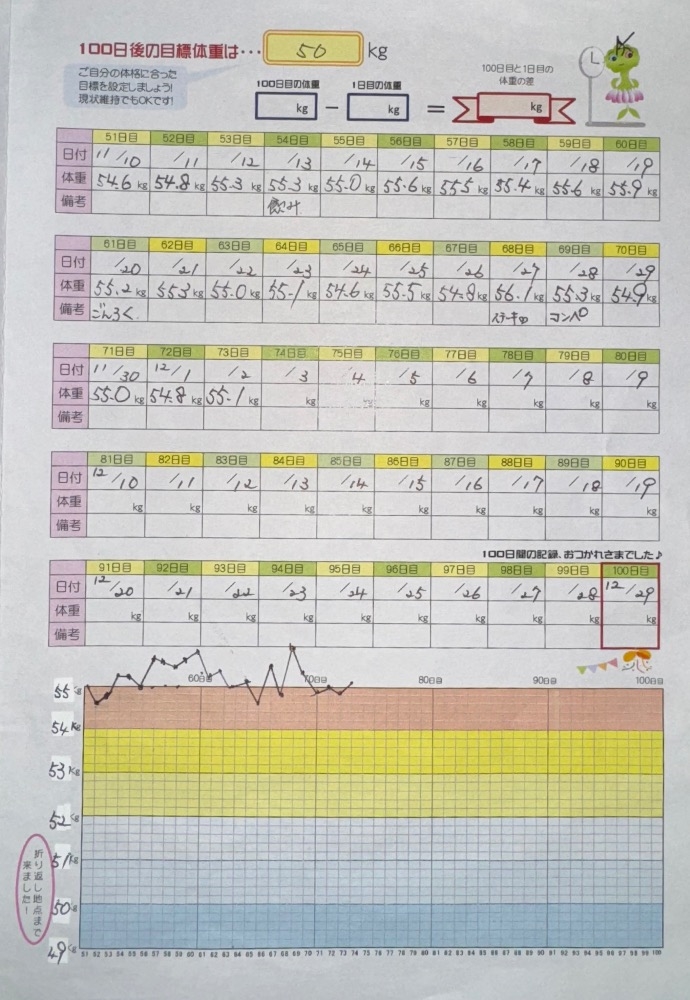 100日後の目標体重は・・・ 50 kg
ご自分の体格に合った
目標を設定しましょう!
現状維持でもOKです!
100日目の体重 1日目の体重
100日目と1日目の
体重の差
kg － kg ＝ kg
51日目 52日目 53日目 54日目 55日目 56日目 57日目 58日目 59日目 60日目
日付 11/10 /11 /12 /13 /14 /15 /16 /17 /18 /19
体重 54.6 kg 54.8 kg 55.3 kg 55.3 kg 55.0 kg 55.6 kg 55.5 kg 55.4 kg 55.6 kg 55.9 kg
備考 飲み
61日目 62日目 63日目 64日目 65日目 66日目 67日目 68日目 69日目 70日目
日付 /20 /21 /22 /23 /24 /25 /26 /27 /28 /29
体重 55.2 kg 55.3 kg 55.0 kg 55.1 kg 54.6 kg 55.5 kg 54.8 kg 56.1 kg 55.3 kg 54.9 kg
備考 ごんろく コンペ
71日目 72日目 73日目 74日目 75日目 76日目 77日目 78日目 79日目 80日目
日付 11/30 12/1 /2 /3 /4 /5 /6 /7 /8 /9
体重 55.0 kg 54.8 kg 55.1 kg kg kg kg kg kg kg kg
備考
81日目 82日目 83日目 84日目 85日目 86日目 87日目 88日目 89日目 90日目
日付 12/10 /11 /12 /13 /14 /15 /16 /17 /18 /19
体重 kg kg kg kg kg kg kg kg kg kg
備考
100日間の記録、おつかれさまでした♪
91日目 92日目 93日目 94日目 95日目 96日目 97日目 98日目 99日目 100日目
日付 12/20 /21 /22 /23 /24 /25 /26 /27 /28 12/29
体重 kg kg kg kg kg kg kg kg kg kg
備考
60日目 70日目 80日目 90日目 100日目
55 kg
54 kg
53 kg
52 kg
51 kg
50 kg
49 kg
折り返し地点まで
来ました!
51 52 53 54 55 56 57 58 59 60 61 62 63 64 65 66 67 68 69 70 71 72 73 74 75 76 77 78 79 80 81 82 83 84 85 86 87 88 89 90 91 92 93 94 95 96 97 98 99 100